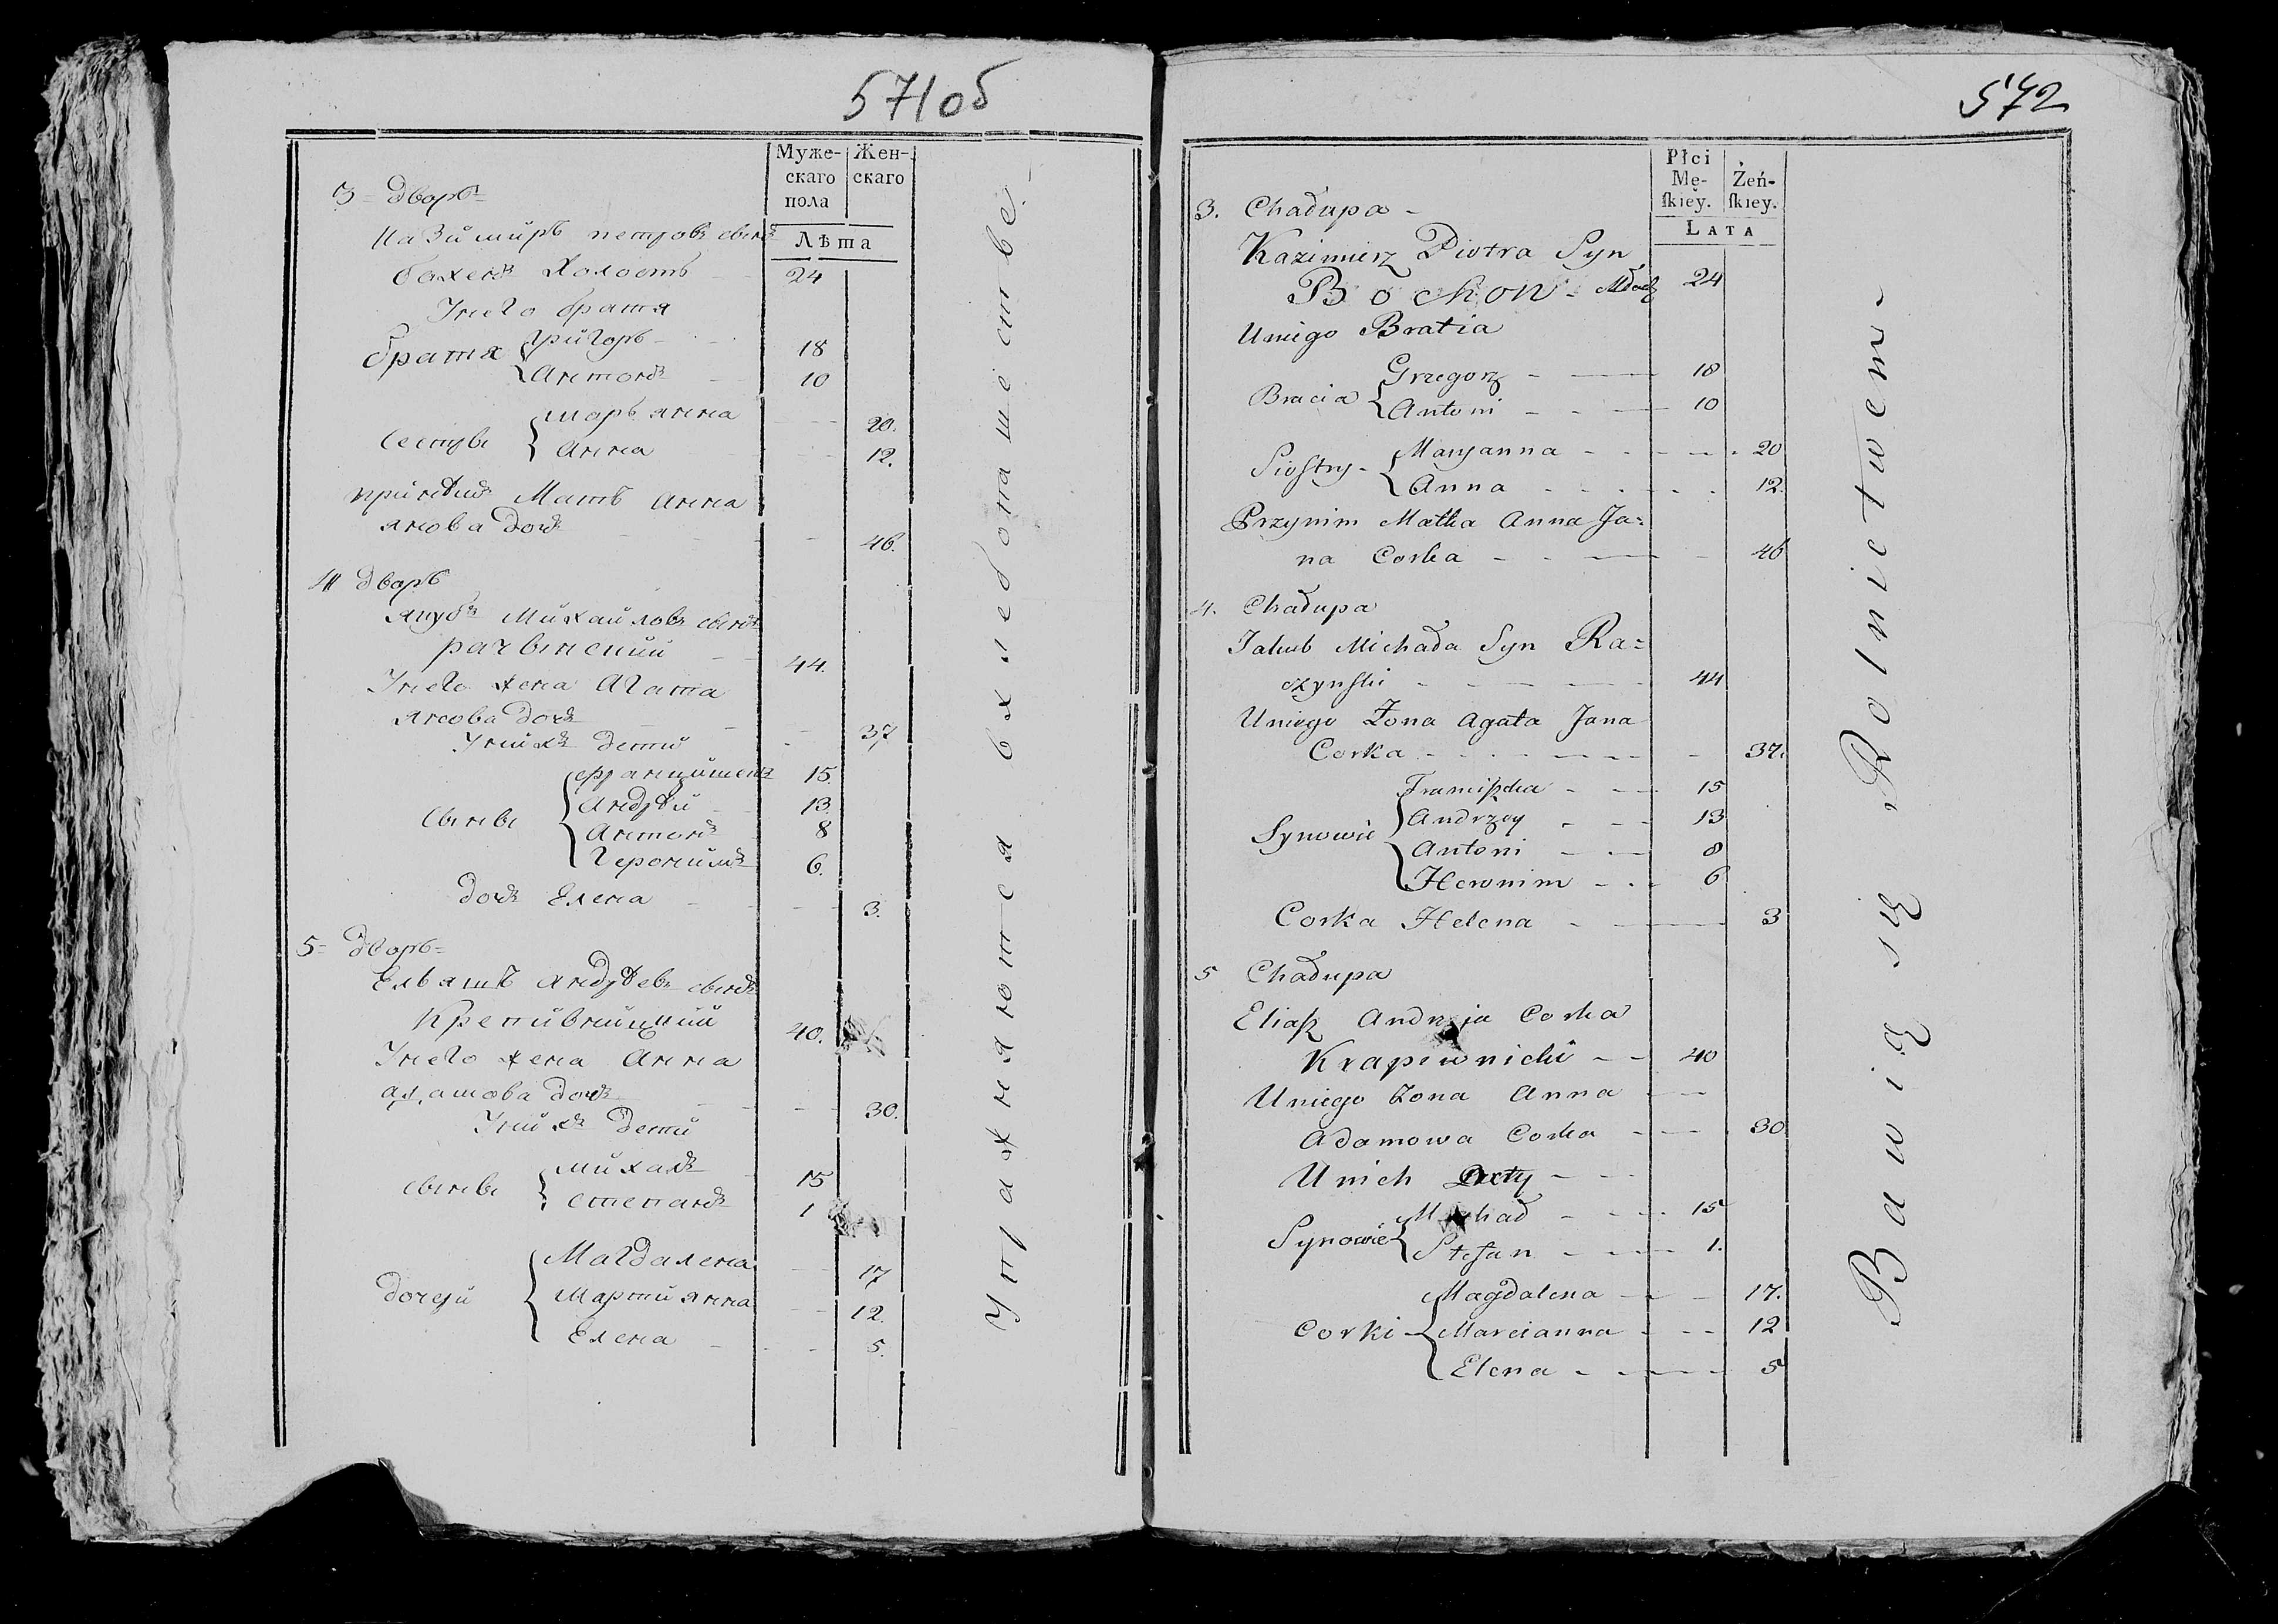 571об
Муже-
скаго
пола
Жен-
скаго
Лѣта
3 = дворъ =
Казимиръ петровъ сынъ
бохенъ Холостъ - 24
У него братя
братя { Григоръ - 18
Антонъ - 10
Сестры { Марьянна - - 20.
Анна - 12.
при нѣмъ Мать Анна
янова дочь - - 46.
4 дворъ
якубъ Михайловъ сынъ
рачынский - 44.
У него жена Агата
янова дочь - - 37
У нихъ дети
Сыны { Францишекъ 15.
Андрѣй - 13.
Антонъ 8
Геронимъ 6.
дочь Елена - - 3.
5 = дворъ =
Ельяшъ андрѣевъ сынъ
Крепивницкий 40.
У него жена Анна
адамова дочь - - 30.
У нихъ дети
сыны { михалъ - 15
степанъ 1
дочери { Магдалена - 17
Мартиянна - 12.
Елена - - 5.
Упражняются в хлебопашестве. -
572
Płci
Mę-
skiey.
Żeń-
skiey.
LATA
3. Chałupa -
Kazimierz Piotra Syn
Bochon - Młodz 24
Uniego Bratia
Bracia { Grzegorz - — 18
Antoni - - — 10
Siostry - { Maryanna - - - - 20
Anna - - - - 12.
Przynim Matka Anna Ja=
na Corka - - — - 46
4. Chałupa
Jakub Michała Syn Ra=
czynski - — - — 44
Uniego Żona Agata Jana
Corka - - - - - 37.
Synowie { Franciszka - - - 15
Andrzey - - - 13
Antoni - - 8
Heronim - - - 6
Corka Helena - — 3
5 Chałupa
Eliasz Andrzeja Corka
Krapiwnicki - - 40
Uniego Zona Anna - —
Adamowa Corka - — - 30
Unich Dzety - -
Synowie { Michał - - - 15
Stefan - - — 1.
Corki - { Magdalena - - - 17.
Marcianna - - - 12
Elena - - — - 5
Bawią się Rolnictwem -